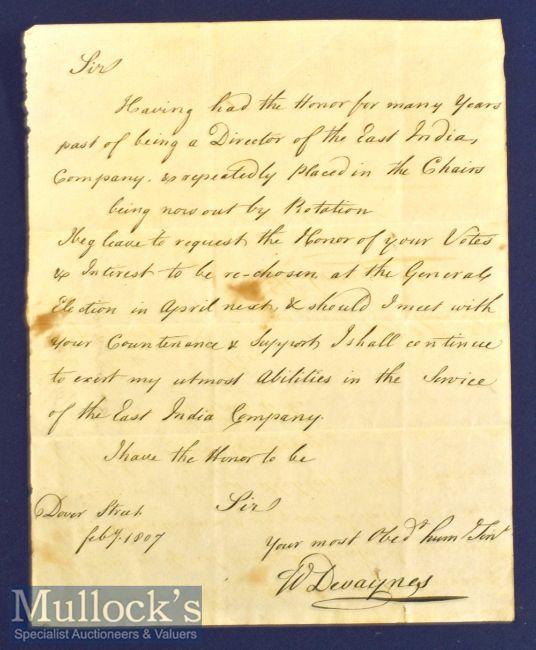 Sir
Having had the Honor for many Years
past of being a Director of the East India
Company. & repeatedly placed in the Chairs
being now out by Rotation
I beg leave to request the Honor of your Votes
& Interest to be re-chosen at the General
Election in April next, & should I meet with
your Countenance & Support, I shall continue
to exert my utmost Abilities in the Service
of the East India Company.
I have the Honor to be
Sir
Dover Street
feby. 1807
Your most Obedt. hume. Servt
W Devaynes
Mullock's
Specialist Auctioneers & Valuers